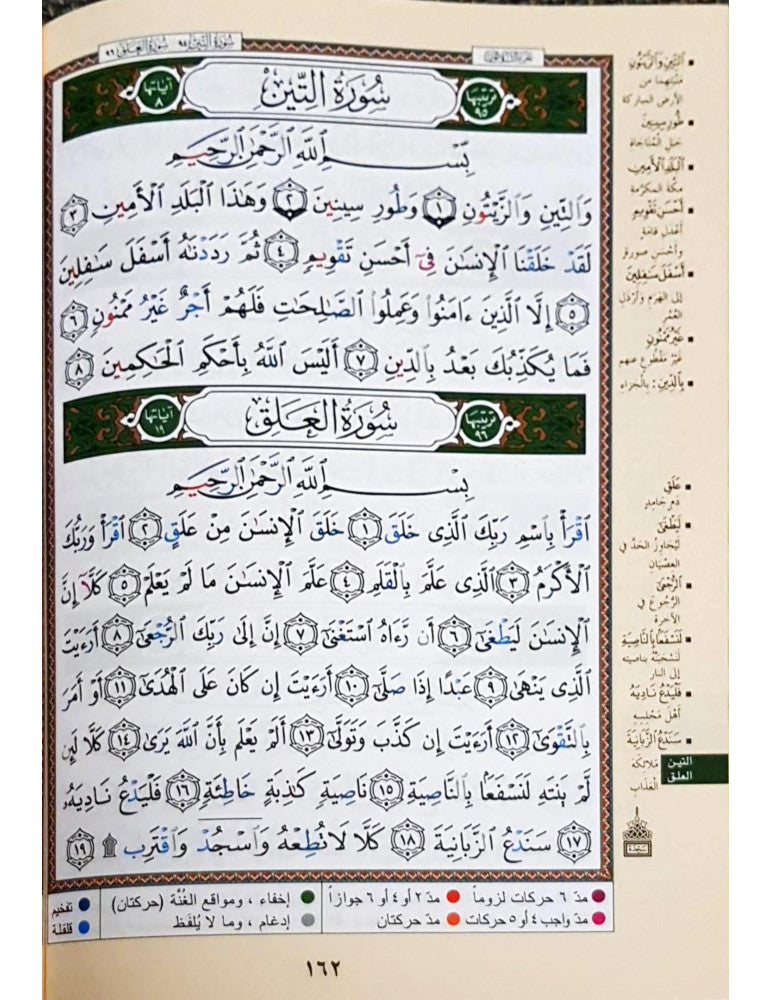 سُورَةُ التِّينِ ٩٥ سُورَةُ العَلَقِ ٩٦
تَرْتِيبُهَا ٩٥ سُورَةُ التِّينِ آيَاتُهَا ٨
بِسْمِ ٱللَّهِ ٱلرَّحْمَٰنِ ٱلرَّحِيمِ
وَٱلتِّينِ وَٱلزَّيْتُونِ ١ وَطُورِ سِينِينَ ٢ وَهَٰذَا ٱلْبَلَدِ ٱلْأَمِينِ ٣
لَقَدْ خَلَقْنَا ٱلْإِنسَٰنَ فِىٓ أَحْسَنِ تَقْوِيمٍ ٤ ثُمَّ رَدَدْنَٰهُ أَسْفَلَ سَٰفِلِينَ
٥ إِلَّا ٱلَّذِينَ ءَامَنُوا۟ وَعَمِلُوا۟ ٱلصَّٰلِحَٰتِ فَلَهُمْ أَجْرٌ غَيْرُ مَمْنُونٍ ٦
فَمَا يُكَذِّبُكَ بَعْدُ بِٱلدِّينِ ٧ أَلَيْسَ ٱللَّهُ بِأَحْكَمِ ٱلْحَٰكِمِينَ ٨
تَرْتِيبُهَا ٩٦ سُورَةُ العَلَقِ آيَاتُهَا ١٩
بِسْمِ ٱللَّهِ ٱلرَّحْمَٰنِ ٱلرَّحِيمِ
ٱقْرَأْ بِٱسْمِ رَبِّكَ ٱلَّذِى خَلَقَ ١ خَلَقَ ٱلْإِنسَٰنَ مِنْ عَلَقٍ ٢ ٱقْرَأْ وَرَبُّكَ
ٱلْأَكْرَمُ ٣ ٱلَّذِى عَلَّمَ بِٱلْقَلَمِ ٤ عَلَّمَ ٱلْإِنسَٰنَ مَا لَمْ يَعْلَمْ ٥ كَلَّآ إِنَّ
ٱلْإِنسَٰنَ لَيَطْغَىٰٓ ٦ أَن رَّءَاهُ ٱسْتَغْنَىٰٓ ٧ إِنَّ إِلَىٰ رَبِّكَ ٱلرُّجْعَىٰٓ ٨ أَرَءَيْتَ
ٱلَّذِى يَنْهَىٰ ٩ عَبْدًا إِذَا صَلَّىٰٓ ١٠ أَرَءَيْتَ إِن كَانَ عَلَى ٱلْهُدَىٰٓ ١١ أَوْ أَمَرَ
بِٱلتَّقْوَىٰٓ ١٢ أَرَءَيْتَ إِن كَذَّبَ وَتَوَلَّىٰٓ ١٣ أَلَمْ يَعْلَم بِأَنَّ ٱللَّهَ يَرَىٰ ١٤ كَلَّا لَئِن
لَّمْ يَنتَهِ لَنَسْفَعًۢا بِٱلنَّاصِيَةِ ١٥ نَاصِيَةٍ كَٰذِبَةٍ خَاطِئَةٍ ١٦ فَلْيَدْعُ نَادِيَهُۥ
١٧ سَنَدْعُ ٱلزَّبَانِيَةَ ١٨ كَلَّا لَا تُطِعْهُ وَٱسْجُدْ وَٱقْتَرِب ۩ ١٩
ٱلتِّينِ وَٱلزَّيْتُونِ
مَنْبَتِهِمَا مِن
الأرضِ المباركة
طُورِ سِينِينَ
جَبَلِ المُنَاجَاة
ٱلْبَلَدِ ٱلْأَمِينِ
مكّة المكرّمة
أَحْسَنِ تَقْوِيمٍ
أعْدَلِ قامَةٍ
وأحْسَنِ صورةٍ
أَسْفَلَ سَٰفِلِينَ
إلى الهَرَمِ وأرْذلِ
العُمُر
غَيْرُ مَمْنُونٍ
غَيْرُ مَقْطُوعٍ عنهم
بِٱلدِّينِ: بالجَزاءِ
عَلَقٍ
دَمٍ جَامِدٍ
لَيَطْغَىٰٓ
لَيُجاوزُ الحَدَّ في
العِصْيَان
ٱلرُّجْعَىٰٓ
الرُّجُوعَ في
الآخرة
لَنَسْفَعًۢا بِٱلنَّاصِيَةِ
لَنَسْحَبَنَّهُ بناصِيَتِه
إلى النار
فَلْيَدْعُ نَادِيَهُۥ
أهْلَ مَجْلِسِه
سَنَدْعُ ٱلزَّبَانِيَةَ
مَلائكَة
العَذَاب
التين
العلق
سجدة
مدّ ٦ حركات لزوماً مدّ ٢ أو ٤ أو ٦ جوازاً إخفاء ، ومواقع الغُنَّة (حركتان) تفخيم
مدّ واجب ٤ أو ٥ حركات مدّ حركتان إدغام ، وما لا يُلفَظ قلقلة
١٦٢